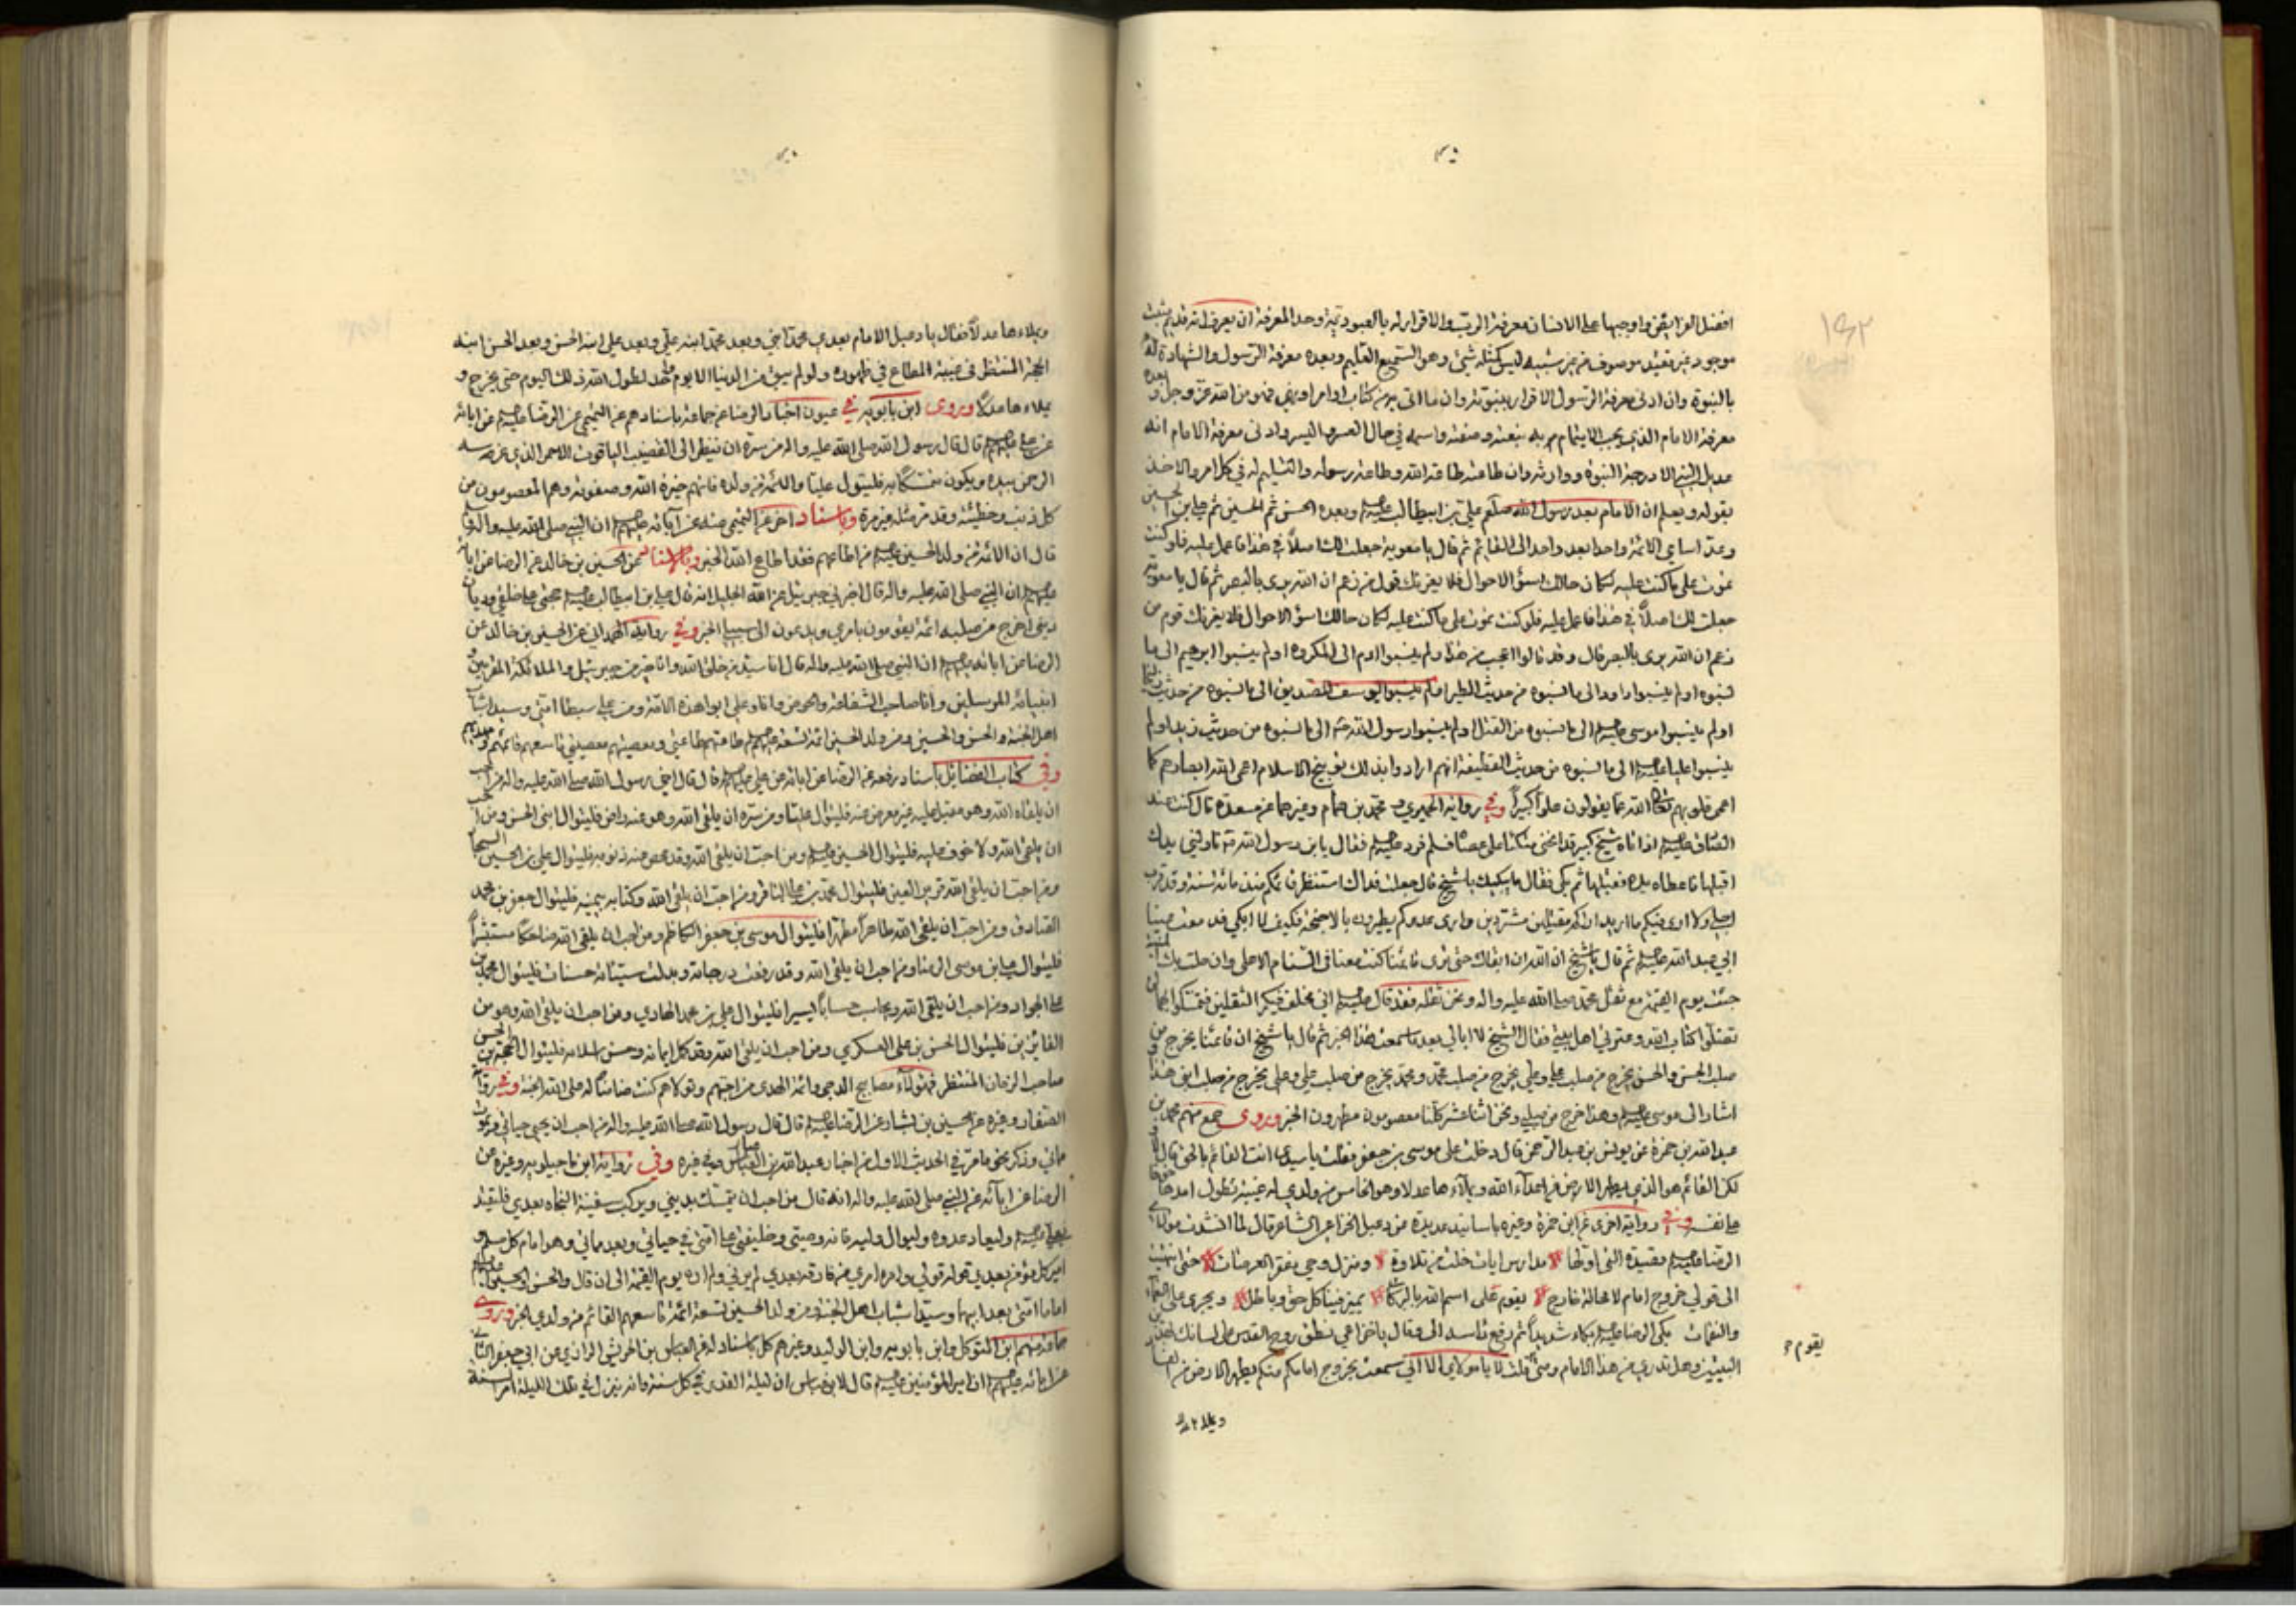 ١٩٢
افضل الفرايض واوجبها على الانسان معرفة الرب والاقرار له بالعبودية وحد المعرفة ان يعرف انه قديم مثبت
موجود غير فقيد موصوف من غير شبيه ليس كمثله شئ وهو السميع العليم وبعده معرفة الرسول والشهادة له
بالنبوة وان ادنى معرفة الرسول الاقرار بنبوته وان ما اتى به من كتاب او امر او نهي فهو من الله عز وجل وبعده
معرفة الامام الذي يجب الايتمام به بنعته وصفته واسمه في حال العسر واليسر وادنى معرفة الامام انه
عديل النبي الا درجة النبوة ووارثه وان طاعته طاعة الله وطاعة رسوله والتسليم له في كل امر والاخذ
بقوله ويعلم ان الامام بعد رسول الله صلعم علي بن ابيطالب وبعده الحسن ثم الحسين ثم علي بن الحسين
وعد اسامي الائمة واحدا بعد واحد الى القائم ثم قال يا معوية جعلت لك اصلاً في هذا فاعمل عليه فلو كنت
تموت على ما كنت عليه لكان حالك اسوأ الاحوال فلا يغرنك قول من زعم ان الله يرى بالبصر ثم قال يا معوية
جعلت لك اصلاً في هذا فاعمل عليه فلو كنت تموت على ما كنت عليه لكان حالك اسوأ الاحوال فلا يغرنك قوم من
زعم ان الله يرى بالبصر قال وقد قالوا اعجب من هذا او لم ينسبوا ادم الى المكروه اولم ينسبوا ابرهيم الى ما
نسبوه اولم ينسبوا داود الى ما نسبوه من حديث الطير اولم ينسبوا يوسف الصديق الى ما نسبوه من حديث زليخا
اولم ينسبوا موسى الى ما نسبوه من القتل اولم ينسبوا رسول الله الى ما نسبوه من حديث زيد اولم
ينسبوا عليا الى ما نسبوه من حديث القطيفة انهم ارادوا بذلك توبيخ الاسلام اعمى الله ابصارهم كما
اعمى قلوبهم تعالى الله عما يقولون علوا كبيرا وفي رواية الحميري ومحمد بن همام وغيرهما عن مسعدة قال كنت عند
الصادق اذ اتاه شيخ كبير قد انحنى متكئا على عصا فسلم فرد فقال يا بن رسول الله ناولني يدك
اقبلها فاعطاه يده فقبلها ثم بكى فقال ما يبكيك يا شيخ قال جعلت فداك انتظر قائمكم منذ مائة سنة وقد قرب
اجلي ولا ارى فيكم ما اريد اراكم مقتلين مشردين وارى عدوكم يطيرون بالاجنحة فكيف لا ابكي فدمعت عينا
ابي عبد الله ثم قال يا شيخ ان الله ان ابقاك حتى ترى قائمنا كنت معنا في السنام الاعلى وان حلت بك المنية
جئت يوم القيمة مع ثقل محمد صلى الله عليه واله ونحن ثقله فقد قال اني مخلف فيكم الثقلين فتمسكوا بهما لن
تضلوا كتاب الله وعترتي اهل بيتي فقال الشيخ لا ابالي بعد ما سمعت هذا الخبر ثم قال يا شيخ ان قائمنا يخرج من
صلب الحسن والحسن يخرج من صلب علي وعلي يخرج من صلب محمد ومحمد يخرج من صلب علي وعلي يخرج من صلب ابني هذا و
اشار الى موسى وهذا خرج من صلبي ونحن اثنا عشر كلنا معصومون مطهرون الخبر وروى جمع منهم محمد بن
عبد الله بن حمزة عن يونس بن عبد الرحمن قال دخلت على موسى بن جعفر فقلت يا سيدي انت القائم بالحق قال
لكن القائم هو الذي يطهر الارض من اعداء الله ويملأها عدلا وهو الخامس من ولدي له غيبة تطول امدها خوفا
على نفسه وفي رواية اخرى عن ابن حمزة وغيره باسانيد عديدة عن دعبل الخزاعي الشاعر قال لما انشدت مولاي
الرضا قصيدة التي اولها مدارس ايات خلت من تلاوة ومنزل وحي مقفر العرصات حتى انتهيت
الى قولي خروج امام لا محالة خارج يقوم على اسم الله بالبركات يميز فينا كل حق وباطل ويجزي على النعماء
والنقمات بكى الرضا بكاء شديدا ثم رفع راسه الي وقال يا خزاعي نطق روح القدس على لسانك بهذين
البيتين وهل تدري من هذا الامام ومتى يقوم قلت لا يا مولاي الا اني سمعت بخروج امام منكم يطهر الارض من الفساد
ويملاءها
ويملاءها عدلاً فقال يا دعبل الامام بعدي محمد ابني وبعد محمد ابنه علي وبعد علي ابنه الحسن وبعد الحسن ابنه
الحجة المنتظر في غيبته المطاع في ظهوره ولو لم يبق من الدنيا الا يوم واحد لطول الله ذلك اليوم حتى يخرج و
يملاءها عدلا وروى ابن بابويه في عيون اخبار الرضا عن جماعة باسنادهم عن التميمي عن الرضا عن ابائه
عن علي قال قال رسول الله صلى الله عليه واله من سره ان ينظر الى القضيب الياقوت الاحمر الذي غرسه
الرحمن بيده ويكون متمسكا به فليتول عليا والائمة من ولده فانهم خيرة الله وصفوته وهم المعصومون من
كل ذنب وخطيئة وقد مر مثله غير مرة وباسناد اخر عن التميمي عنه عن آبائه ان النبي صلى الله عليه واله
قال ان الائمة من ولد الحسين من اطاعهم فقد اطاع الله الخبر عن الحسين بن خالد عن الرضا عن ابائه
ان النبي صلى الله عليه واله قال اخبرني جبرئيل عن الله الجليل انه قال علي بن ابيطالب حجتي على خلقي وديان
ديني اخرج من صلبه ائمة يقومون بامري ويدعون الى سبيلي الخبر وفي رواية الهمداني عن الحسين بن خالد عن
الرضا عن ابائه ان النبي صلى الله عليه واله قال انا سيد من خلق الله وانا خير من جبرئيل والملائكة المقربين و
انبيائه المرسلين وانا صاحب الشفاعة والحوض وانا وعلي ابوا هذه الامة ومن علي سبطا امتي وسيدا شباب
اهل الجنة والحسن والحسين ومن ولد الحسين ائمة تسعة طاعتهم طاعتي ومعصيتهم معصيتي تاسعهم قائمهم ومهديهم
وفي كتاب الفضائل باسناد رفعه عن الرضا عن ابائه عن علي قال قال اخي رسول الله صلى الله عليه واله من احب
ان يلقاه الله وهو مقبل عليه غير معرض عنه فليتوال عليا ومن سره ان يلقى الله وهو عنه راض فليتوال ابني الحسن ومن احب
ان يلقى الله ولا خوف عليه فليتوال الحسين ومن احب ان يلقى الله وقد محص عنه ذنوبه فليتوال علي بن الحسين السجاد
ومن احب ان يلقى الله قرير العين فليتوال محمد بن علي الباقر ومن احب ان يلقى الله وكتابه بيمينه فليتوال جعفر بن محمد
الصادق ومن احب ان يلقى الله طاهرا مطهرا فليتوال موسى بن جعفر الكاظم ومن احب ان يلقى الله ضاحكا مستبشرا
فليتوال علي بن موسى الرضا ومن احب ان يلقى الله وقد رفعت درجاته وبدلت سيئاته حسنات فليتوال محمد بن
علي الجواد ومن احب ان يلقى الله ويحاسب حسابا يسيرا فليتوال علي بن محمد الهادي ومن احب ان يلقى الله وهو من
الفائزين فليتوال الحسن بن علي العسكري ومن احب ان يلقى الله وقد كمل ايمانه وحسن اسلامه فليتوال الحجة بن الحسن
صاحب الزمان المنتظر فهؤلاء مصابيح الدجى وائمة الهدى من احبهم وتولاهم كنت ضامنا له على الله الجنة وفي رواية
الصفار وغيره عن الحسين بن بشار عن الرضا قال قال رسول الله صلى الله عليه واله من احب ان يحيى حياتي ويموت
مماتي وذكر نحو ما مر في الحديث الاول من اخبار عبد الله بن العباس وفي غيره وفي رواية ابن ماجيلويه وغيره عن
الرضا عن ابائه عن النبي صلى الله عليه واله انه قال من احب ان يتمسك بديني ويركب سفينة النجاة بعدي فليقتد
بعلي وليعاد عدوه وليوال وليه فانه وصيي وخليفتي على امتي في حياتي وبعد مماتي وهو امام كل مسلم و
امير كل مؤمن بعدي قوله قولي وامره امري من فارقه بعدي لم يرني ولم اره يوم القيمة الى ان قال والحسن والحسين
اماما امتي بعد ابيهما وسيدا شباب اهل الجنة ومن ولد الحسين تسعة ائمة تاسعهم القائم من ولدي الخبر وروى
جماعة منهم ابن المتوكل وابن بابويه وابن الوليد وغيرهم كل باسناد له عن العباس بن الحريش الرازي عن ابي جعفر الثاني
عن ابائه ان امير المؤمنين قال لابن عباس ان ليلة القدر في كل سنة وانه ينزل في تلك الليلة امر السنة